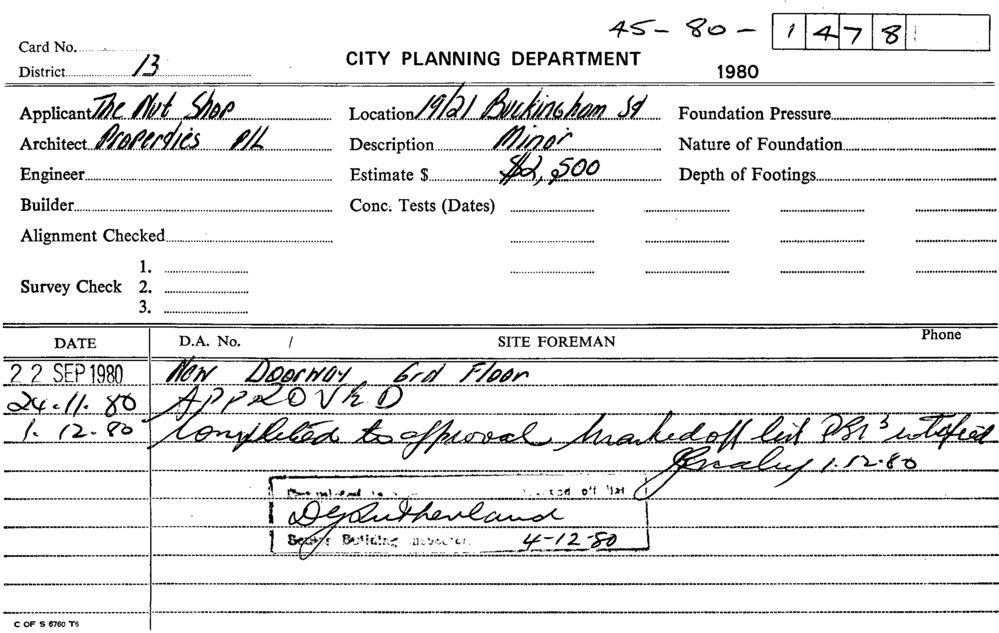 45-80-1478
Card No.
District 13
CITY PLANNING DEPARTMENT
1980
Applicant The Nut Shop
Location 19/21 Buckingham St
Foundation Pressure
Architect Properties P/L
Description Minor
Nature of Foundation
Engineer
Estimate $ $2,500
Depth of Footings
Builder
Conc. Tests (Dates)
Alignment Checked
Survey Check 1.
2.
3.
DATE D.A. No. / SITE FOREMAN Phone
22 SEP 1980 New Doorway Grd Floor
24.11.80 APPROVED
1.12.80 Completed to approval Marked off list notified
1.12.80
off list
DG Sutherland
Senior Building Inspector 4-12-80
C OF S 6760 T6